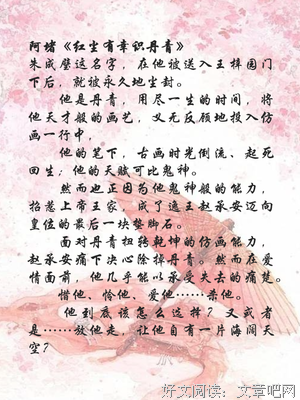 阿堵《红尘有幸识丹青》
朱成璧这名字，在他被送入王梓园门
下后，就被永久地尘封。
他是丹青，用尽一生的时间，将
他天才般的画艺，义无反顾地投入仿
画一行中，
他的笔下，古画时光倒流、起死
回生；他的天赋可比鬼神。
然而也正因为他鬼神般的能力，
招惹上帝王家，成了逸王赵承安迈向
皇位的最后一块垫脚石。
面对丹青扭转乾坤的仿画能力，
赵承安痛下决心除掉丹青。然而在爱
情面前，他几乎能以承受失去的痛楚。
惜他、怜他、爱他……杀他。
他到底该怎么选择？又或者
是……放他走，让他自有一片海阔天
空？
好文阅读：文章吧网